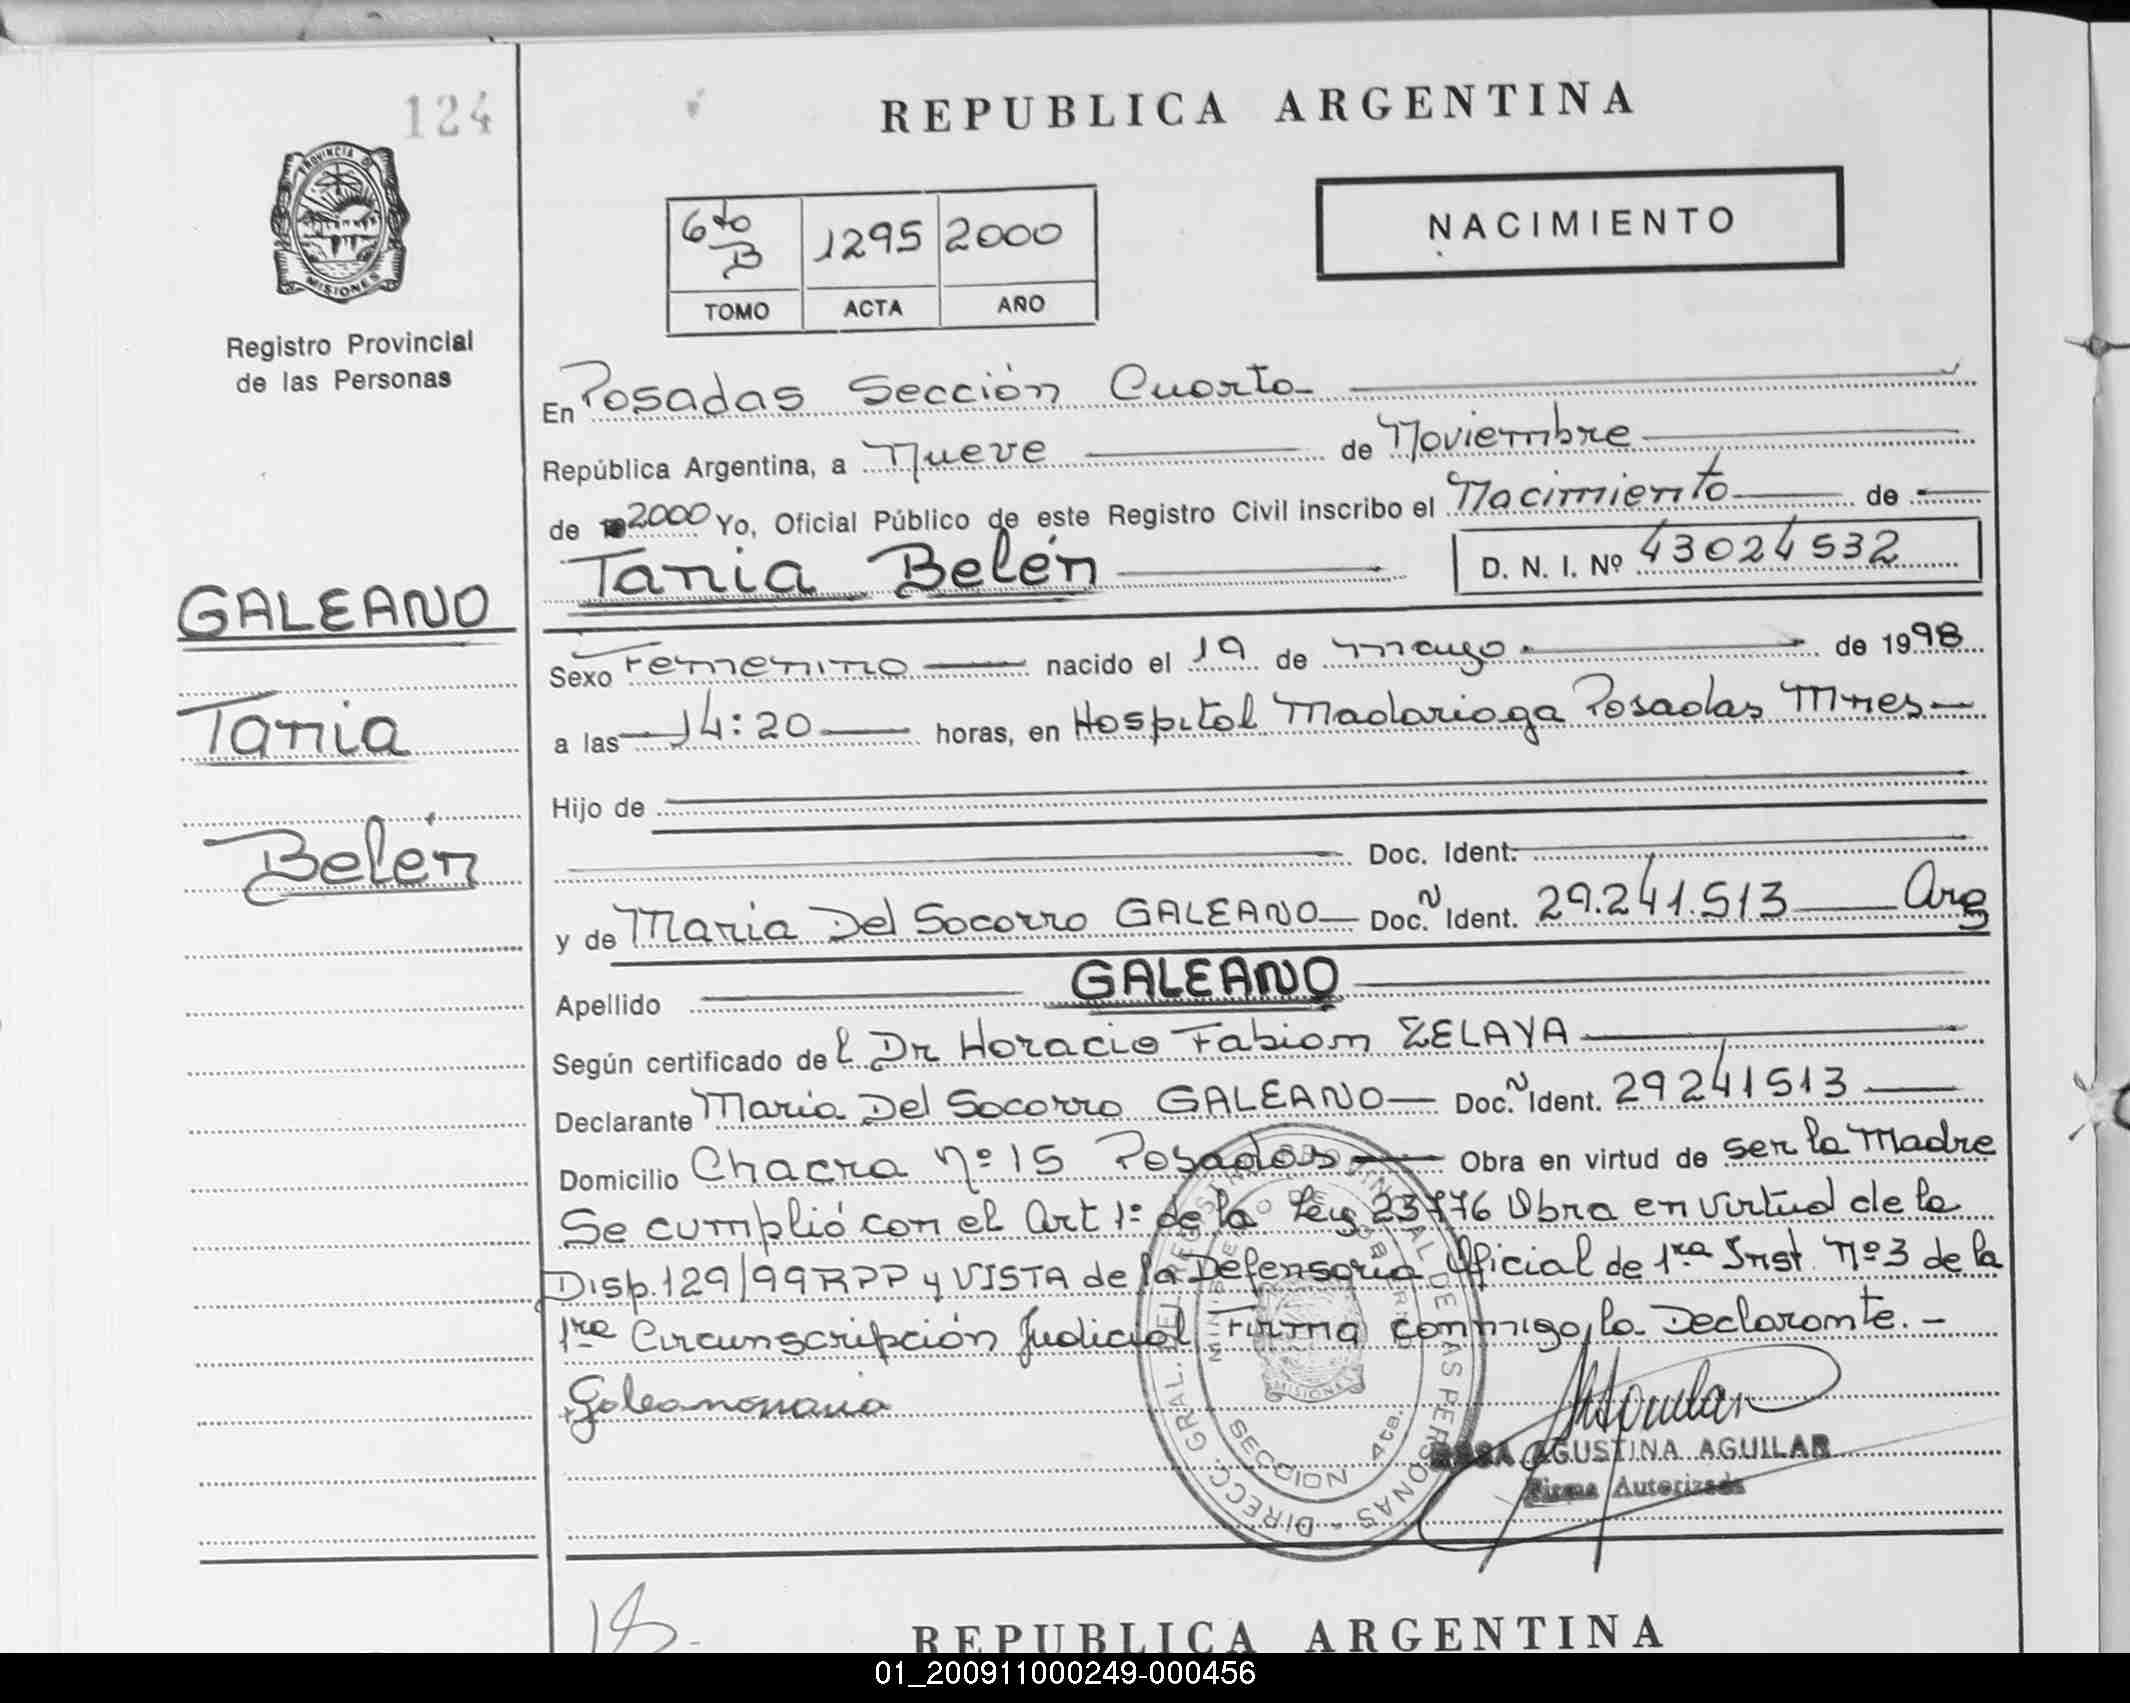 124
PROVINCIA DE
MISIONES
Registro Provincial
de las Personas
GALEANO
Tania
Belén
REPUBLICA ARGENTINA
6to B 1295 2000
TOMO ACTA AÑO
NACIMIENTO
En Posadas Sección Cuarta
República Argentina, a Nueve de Noviembre
de 2000 Yo, Oficial Público de este Registro Civil inscribo el Nacimiento de
Tania Belén D. N. I. Nº 43024532
Sexo Femenino nacido el 19 de mayo de 1998
a las 14:20 horas, en Hospital Madariaga Posadas Mnes
Hijo de
Doc. Ident.
y de Maria Del Socorro GALEANO Doc. N Ident. 29.241.513 Arg
Apellido GALEANO
Según certificado del Dr Horacio Fabian ZELAYA
Declarante Maria Del Socorro GALEANO Doc. N Ident. 29241513
Domicilio Chacra Nº 15 Posadas Obra en virtud de ser la Madre
Se cumplió con el Art 1º de la Ley 23776 Obra en virtud de la
Disp. 129/99 RPP y VISTA de la Defensoria Oficial de 1ra Inst. Nº 3 de la
1ra Circunscripción Judicial Firma conmigo, la Declarante.-
Galeano maria
DIRECC. GRAL. DEL REGISTRO PROVINCIAL DE LAS PERSONAS
MINISTERIO DE GOBIERNO
MISIONES
SECCION 4ta.
ROSA AGUSTINA AGUILAR
Firma Autorizada
REPUBLICA ARGENTINA
01_200911000249-000456